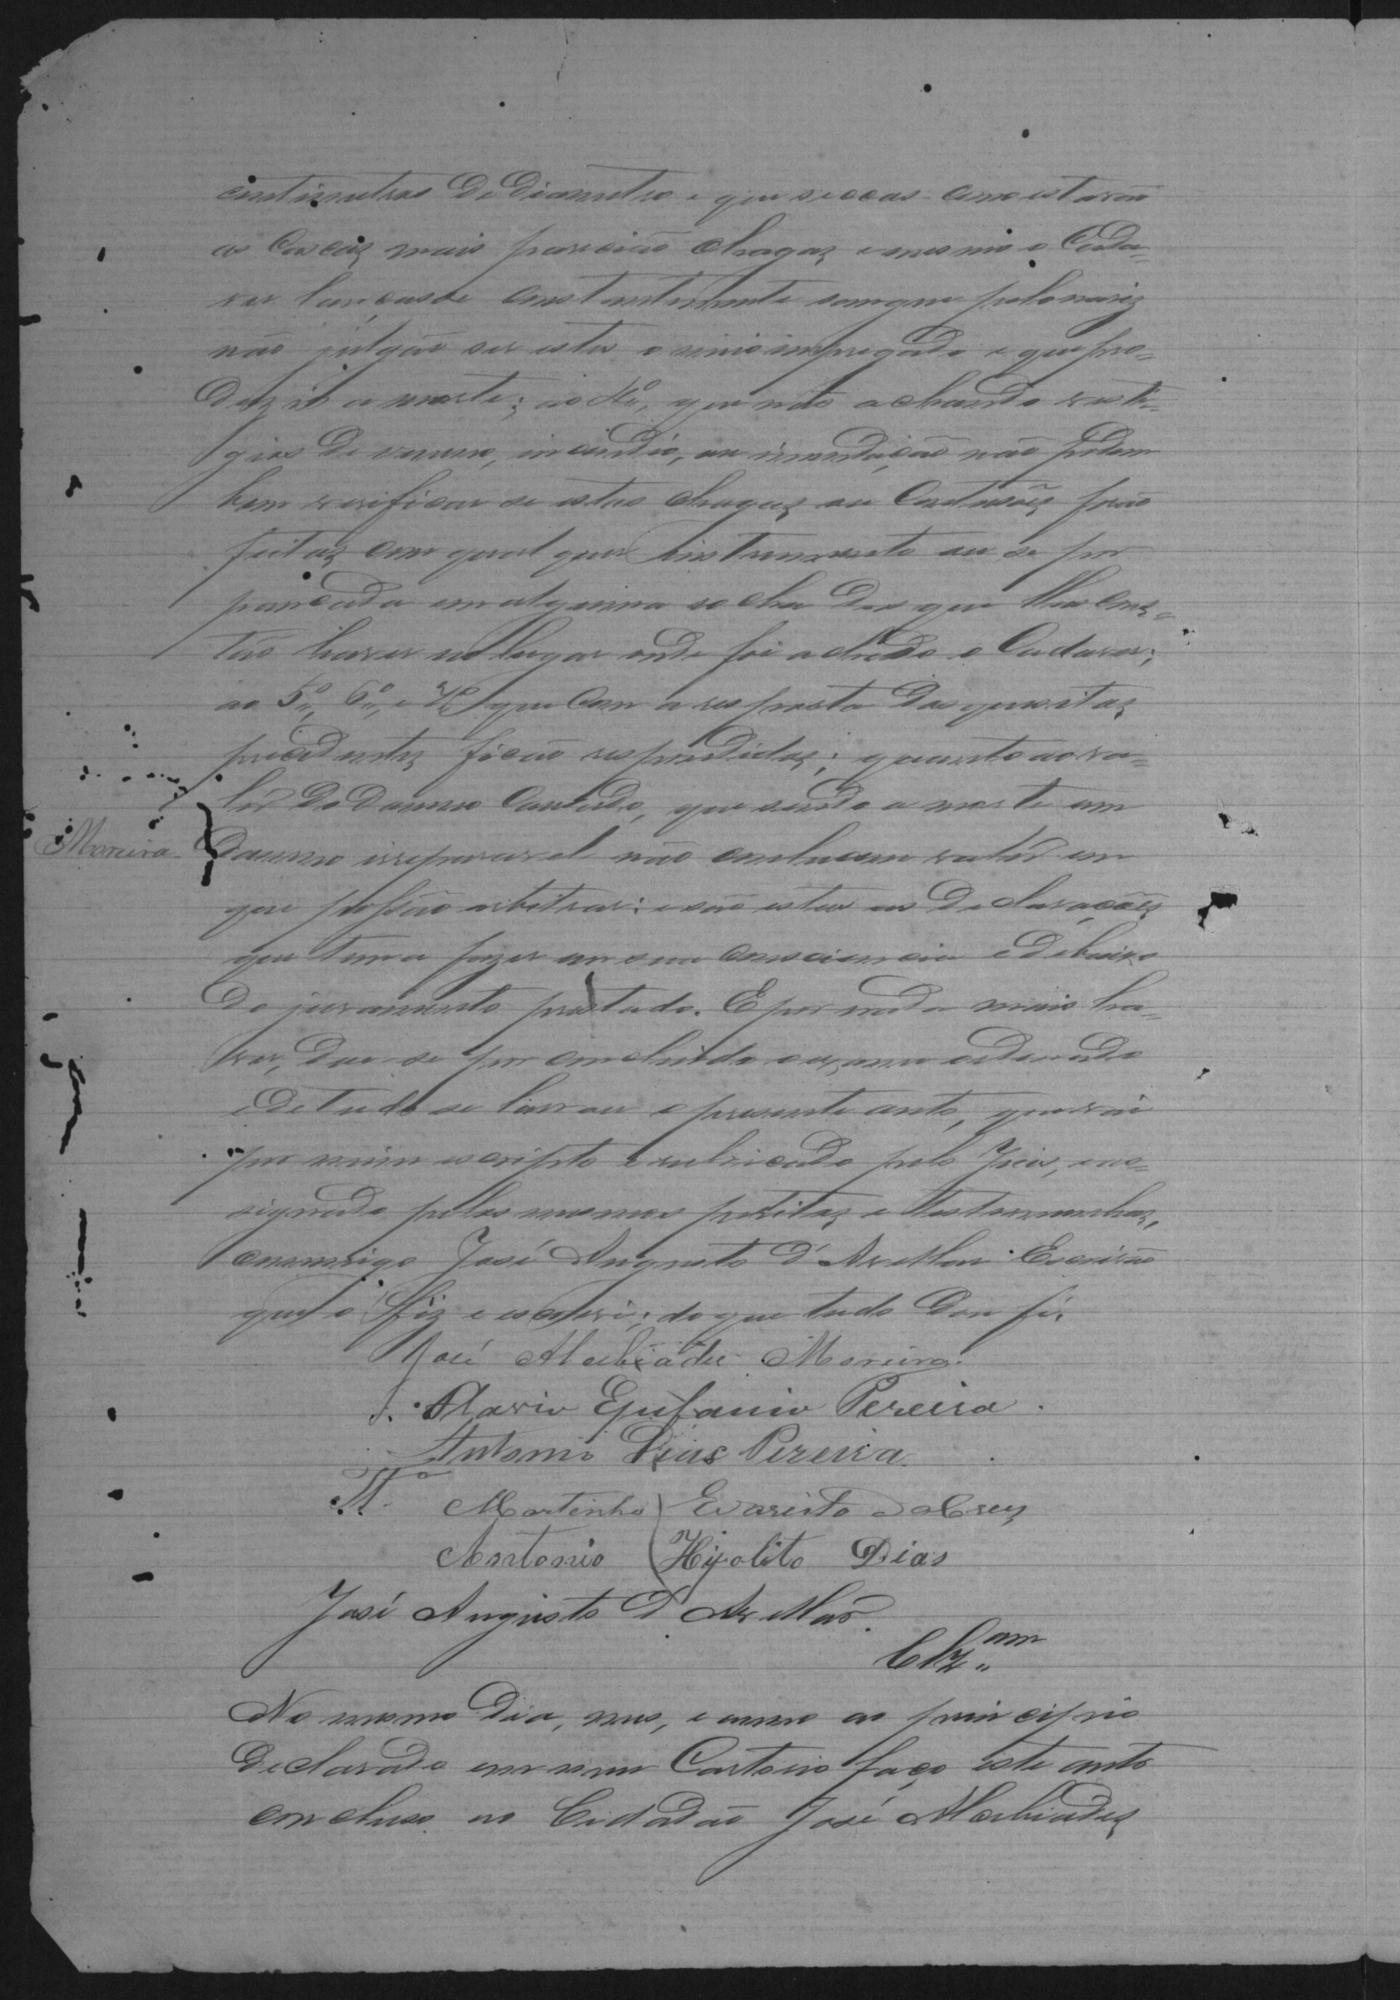 centimetros de diametro e que seccas como estavão
as Coscas mais parecião chagas e mesmo o Cada-
ver lançasse constantemente sangue pelo nariz
não julgão ser este o meio impregado e que pro-
duzio a morte; ao 4º, que não achando vesti-
gios de veneno, incendio, ou inundação não podem
bem verificar se estas chagas ou Contusões forão
feitas com qualquer instrumento ou se por
pancada em alguma rocha das que lhes cons-
tão haver no lugar onde foi achado o Cadaver;
ao 5º, 6º, e 7º que com a resposta dos quesitos
precedentes ficão respondidos; quanto ao va-
lor do damno Causado, que sendo a morte um
Moreira
damno irreparavel não conhecem valor em
que possão arbitrar: e são estas as declarações
que tem a fazer em sua consciencia e debaixo
do juramento prestado. E por nada mais ha-
ver, deu-se por concluido o exame ordenado
e de tudo se lavrou o presente auto, que vai
por mim escripto e rubricado pelo Juis, e as-
signado pelos mesmos peritos e testemunhas,
commigo José Augusto d'Avellar Escrivão
que o fiz e escrevi; do que tudo dou fé.
José Alcebiades Moreira.
Flavio Epifanio Pereira.
Antonio Dias Pereira
Tª. Martinho Evaristo da Cruz
Antonio Hipolito Dias
José Augusto d'Avellar.
Clzam
No mesmo dia, mes, e anno ao principio
declarado em meu Cartorio faço este auto
concluso ao Cidadão José Alcebiades